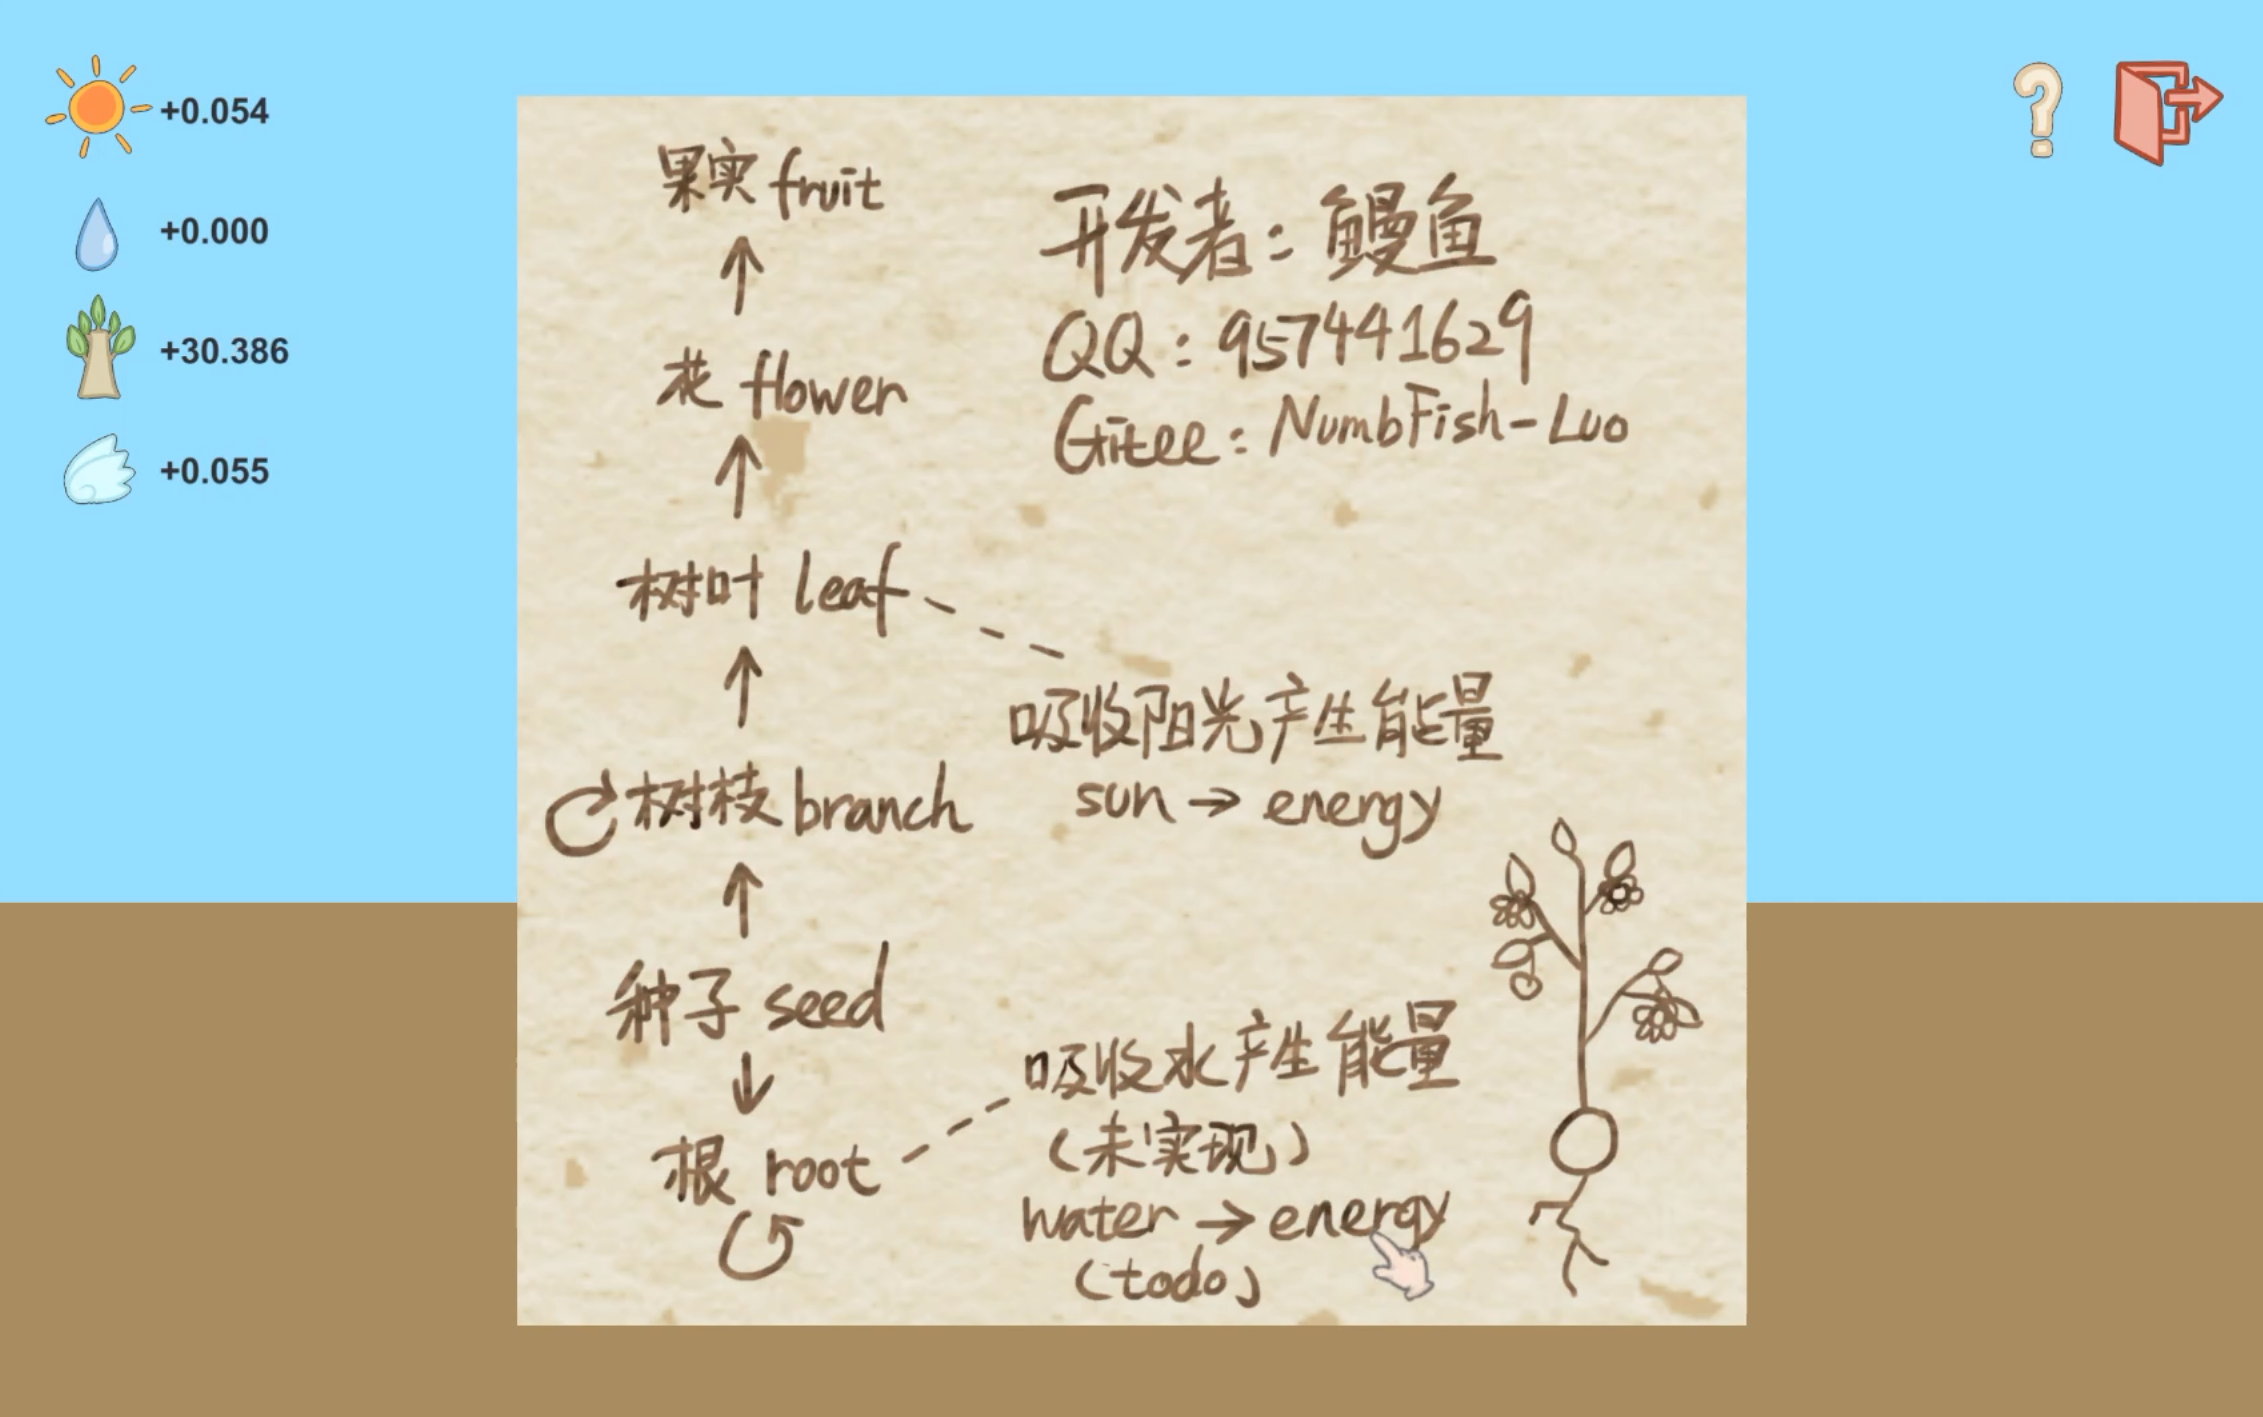 +0.054
+0.000
+30.386
+0.055
果实 fruit
花 flower
树叶 leaf
树枝 branch
种子 seed
根 root
开发者：鳗鱼
QQ：957441629
Gitee：NumbFish-Luo
吸收阳光产生能量
sun → energy
吸收水产生能量
（未实现）
water → energy
（todo）